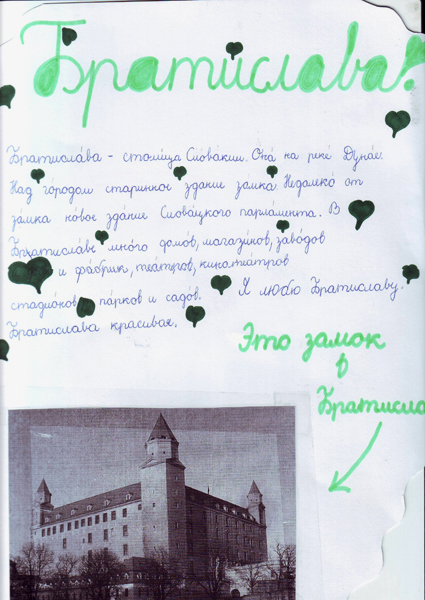 Братислава!
Братисла́ва – столи́ца Слова́кии. Она́ на реке́ Дуна́е.
Над го́родом старинное здание замка. Недалеко́ от
за́мка но́вое зда́ние Слова́цкого парла́мента. В
Братисла́ве мно́го домо́в, магази́нов, заво́дов
и фа́брик, теа́тров, кинотеа́тров
стадио́нов, па́рков и садо́в. Я люблю́ Братисла́ву.
Братислава красивая.
Это замок
в
Братисла